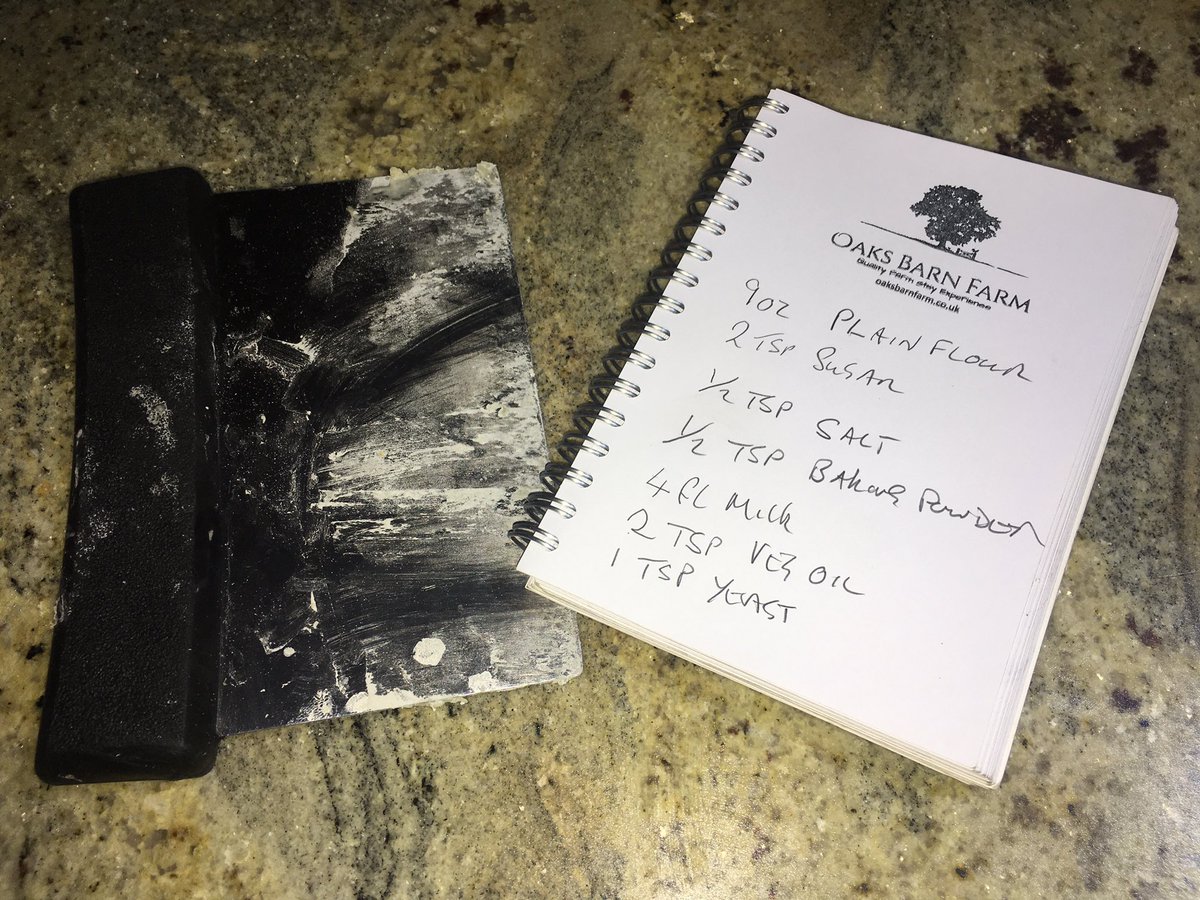 OAKS BARN FARM
Quality Farm Stay Experience
oaksbarnfarm.co.uk
9oz PLAIN FLOUR
2 TSP SUGAR
1/2 TSP SALT
1/2 TSP BAKING POWDER
4 fl Milk
2 TSP VEG OIL
1 TSP YEAST